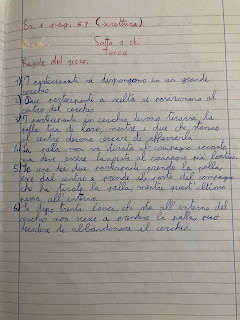 Es. 1 pag. 67 (scrittura)
Sotto a chi
tocca
Regole del gioco:
1) I partecipanti si dispongono in un grande
cerchio.
2) Due partecipanti a scelta si posizionano al
centro del cerchio.
3) I partecipanti in cerchio devono tirarsi la
palla tra di loro, mentre i due che stanno
al centro devono cercare di afferrarla.
4) La palla non va tirata al compagno accanto,
ma deve essere lanciata al compagno più lontano.
5) Se uno dei due partecipanti prende la palla,
esce dal centro e prende il posto del compagno
che ha tirato la palla, mentre quest'ultimo
passa all'interno.
6) Se dopo trenta lanci, chi sta all'interno del
cerchio non riesce a prendere la palla, può
decidere di abbandonare il cerchio.